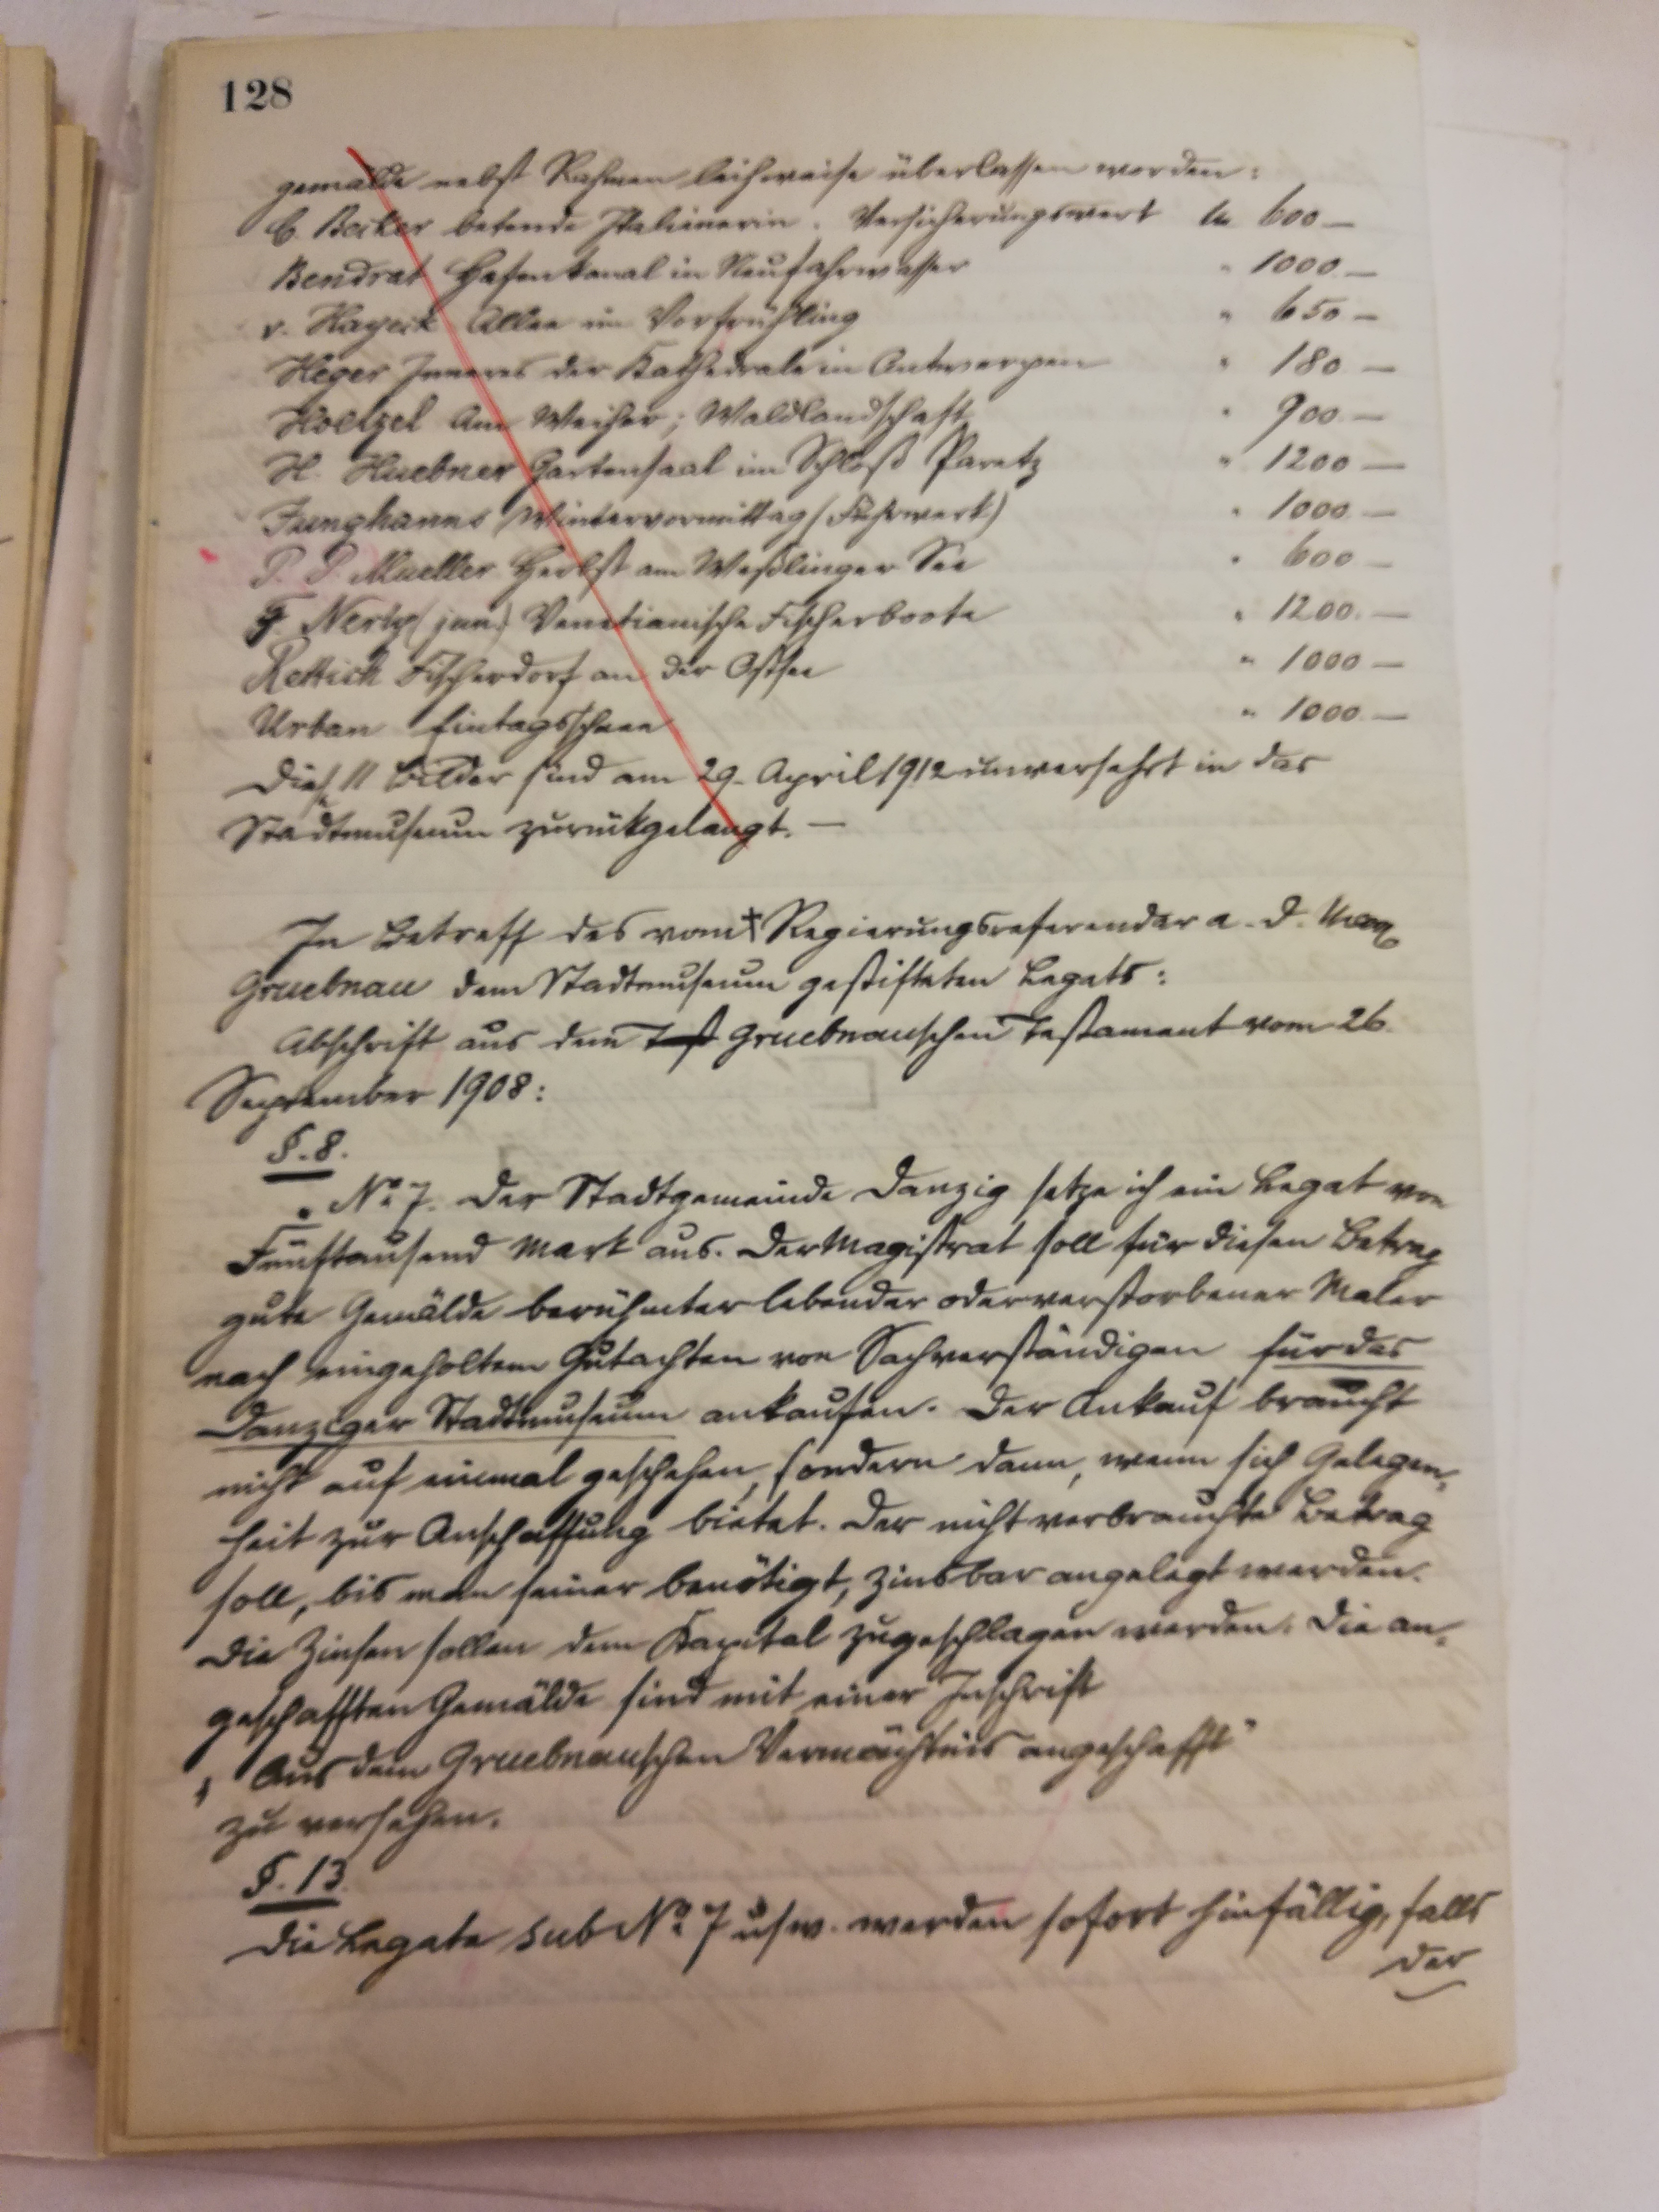 128
gemälde nebst Rahmen leihweise überlassen worden:
C. Becker betende Italienerin. Versicherungswert M 600 —
Bendrat Hafenkanal in Neufahrwasser " 1000 —
v. Hayeck Allee im Vorfrühling " 650 —
Heger Inneres der Kathedrale in Antwerpen " 180 —
Hoelzel Am Weiher; Waldlandschaft " 900 —
H. Huebner Gartensaal im Schloß Paretz " 1200 —
Junghanns Wintervormittag (Fuhrwerk) " 1000 —
P. P. Mueller Herbst am Weßlinger See " 600 —
F. Nerly (jun.) Venetianische Fischerboote " 1200. —
Rettich Fischerdorf an der Ostsee " 1000 —
Urban Eintagsschnee " 1000 —
Diese 11 Bilder sind am 29. April 1912 unversehrt in das
Stadtmuseum zurückgelangt. —
In Betreff des vom † Regierungsreferendar a. D. Max
Gruebnau dem Stadtmuseum gestifteten Legats:
Abschrift aus dem Gruebnauschen Testament vom 26.
September 1908:
§. 8.
„ No 7. Der Stadtgemeinde Danzig setze ich ein Legat von
Fünftausend Mark aus. Der Magistrat soll für diesen Betrag
gute Gemälde berühmter lebender oder verstorbener Maler
nach eingeholtem Gutachten von Sachverständigen für das
Danziger Stadtmuseum ankaufen. Der Ankauf braucht
nicht auf einmal geschehen, sondern dann, wenn sich Gelegen-
heit zur Anschaffung bietet. Der nicht verbrauchte Betrag
soll, bis man seiner benötigt, zinsbar angelegt werden.
Die Zinsen sollen dem Kapital zugeschlagen werden. Die an-
geschafften Gemälde sind mit einer Inschrift
„ Aus dem Gruebnauschen Vermächtnis angeschafft"
zu versehen.
§. 13
Die Legate sub No 7 usw. werden sofort hinfällig, falls
der